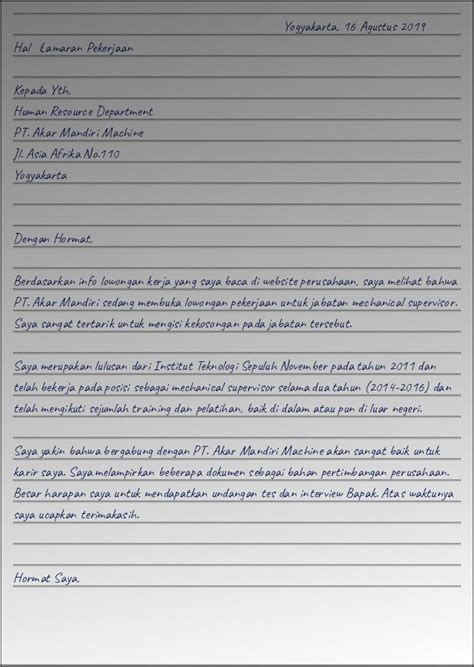 Yogyakarta, 16 Agustus 2019
Hal Lamaran Pekerjaan
Kepada Yth,
Human Resource Department
PT. Akar Mandiri Machine
Jl. Asia Afrika No.110
Yogyakarta
Dengan Hormat,
Berdasarkan info lowongan kerja yang saya baca di website perusahaan, saya melihat bahwa
PT. Akar Mandiri sedang membuka lowongan pekerjaan untuk jabatan mechanical supervisor.
Saya sangat tertarik untuk mengisi kekosongan pada jabatan tersebut.
Saya merupakan lulusan dari Institut Teknologi Sepuluh November pada tahun 2011 dan
telah bekerja pada posisi sebagai mechanical supervisor selama dua tahun (2014-2016) dan
telah mengikuti sejumlah training dan pelatihan, baik di dalam atau pun di luar negeri.
Saya yakin bahwa bergabung dengan PT. Akar Mandiri Machine akan sangat baik untuk
karir saya. Saya melampirkan beberapa dokumen sebagai bahan pertimbangan perusahaan.
Besar harapan saya untuk mendapatkan undangan tes dan interview Bapak. Atas waktunya
saya ucapkan terimakasih.
Hormat Saya,